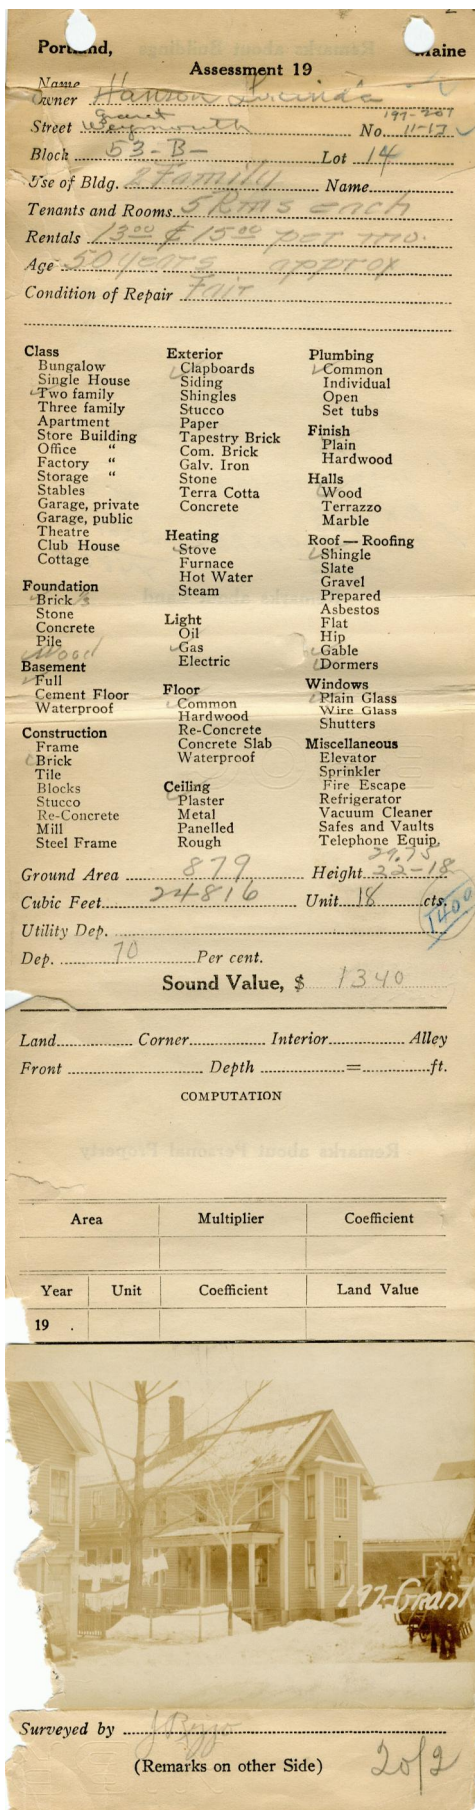 Portland, Maine
Assessment 19
Name
Owner Hanson Lucinda
Grant 197-207
Street Weymouth No. 11-13
Block 53-B- Lot 14
Use of Bldg. 2 Family Name
Tenants and Rooms 5 Rms each
Rentals 13 00 & 15 00 per mo.
Age 50 years approx
Condition of Repair Fair
Class
Bungalow
Single House
Two family
Three family
Apartment
Store Building
Office "
Factory "
Storage "
Stables
Garage, private
Garage, public
Theatre
Club House
Cottage
Foundation
Brick 1/3
Stone
Concrete
Pile
Wood
Basement
Full
Cement Floor
Waterproof
Construction
Frame
Brick
Tile
Blocks
Stucco
Re-Concrete
Mill
Steel Frame
Exterior
Clapboards
Siding
Shingles
Stucco
Paper
Tapestry Brick
Com. Brick
Galv. Iron
Stone
Terra Cotta
Concrete
Heating
Stove
Furnace
Hot Water
Steam
Light
Oil
Gas
Electric
Floor
Common
Hardwood
Re-Concrete
Concrete Slab
Waterproof
Ceiling
Plaster
Metal
Panelled
Rough
Plumbing
Common
Individual
Open
Set tubs
Finish
Plain
Hardwood
Halls
Wood
Terrazzo
Marble
Roof — Roofing
Shingle
Slate
Gravel
Prepared
Asbestos
Flat
Hip
Gable
Dormers
Windows
Plain Glass
Wire Glass
Shutters
Miscellaneous
Elevator
Sprinkler
Fire Escape
Refrigerator
Vacuum Cleaner
Safes and Vaults
Telephone Equip.
29.75
Ground Area 879 Height 22-18
Cubic Feet 24816 Unit 18 cts.
1400
Utility Dep.
Dep. 70 Per cent.
Sound Value, $ 1340
Land Corner Interior Alley
Front Depth = ft.
COMPUTATION
Remarks about Personal Property
Area Multiplier Coefficient
Year Unit Coefficient Land Value
19 .
197-Grant
Surveyed by
(Remarks on other Side)
2 of 2